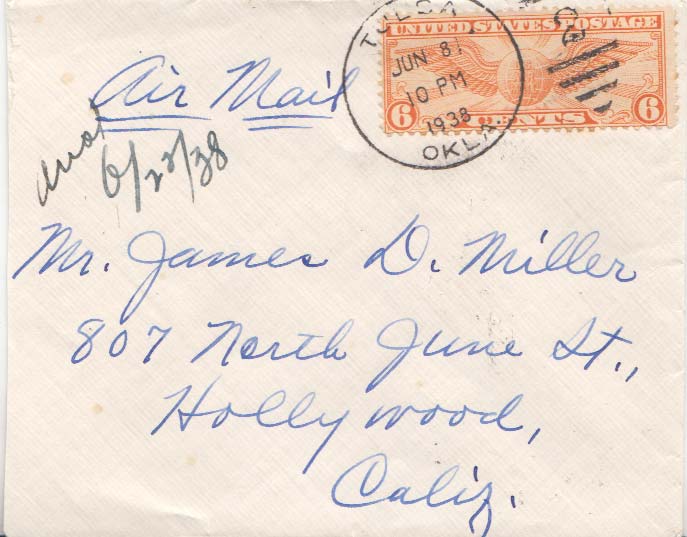 TULSA
JUN 8
10 PM
1938
OKLA.
UNITED STATES POSTAGE
6 CENTS 6
Air Mail
6/22/38
Mr. James D. Miller
807 North June St.,
Hollywood,
Calif.